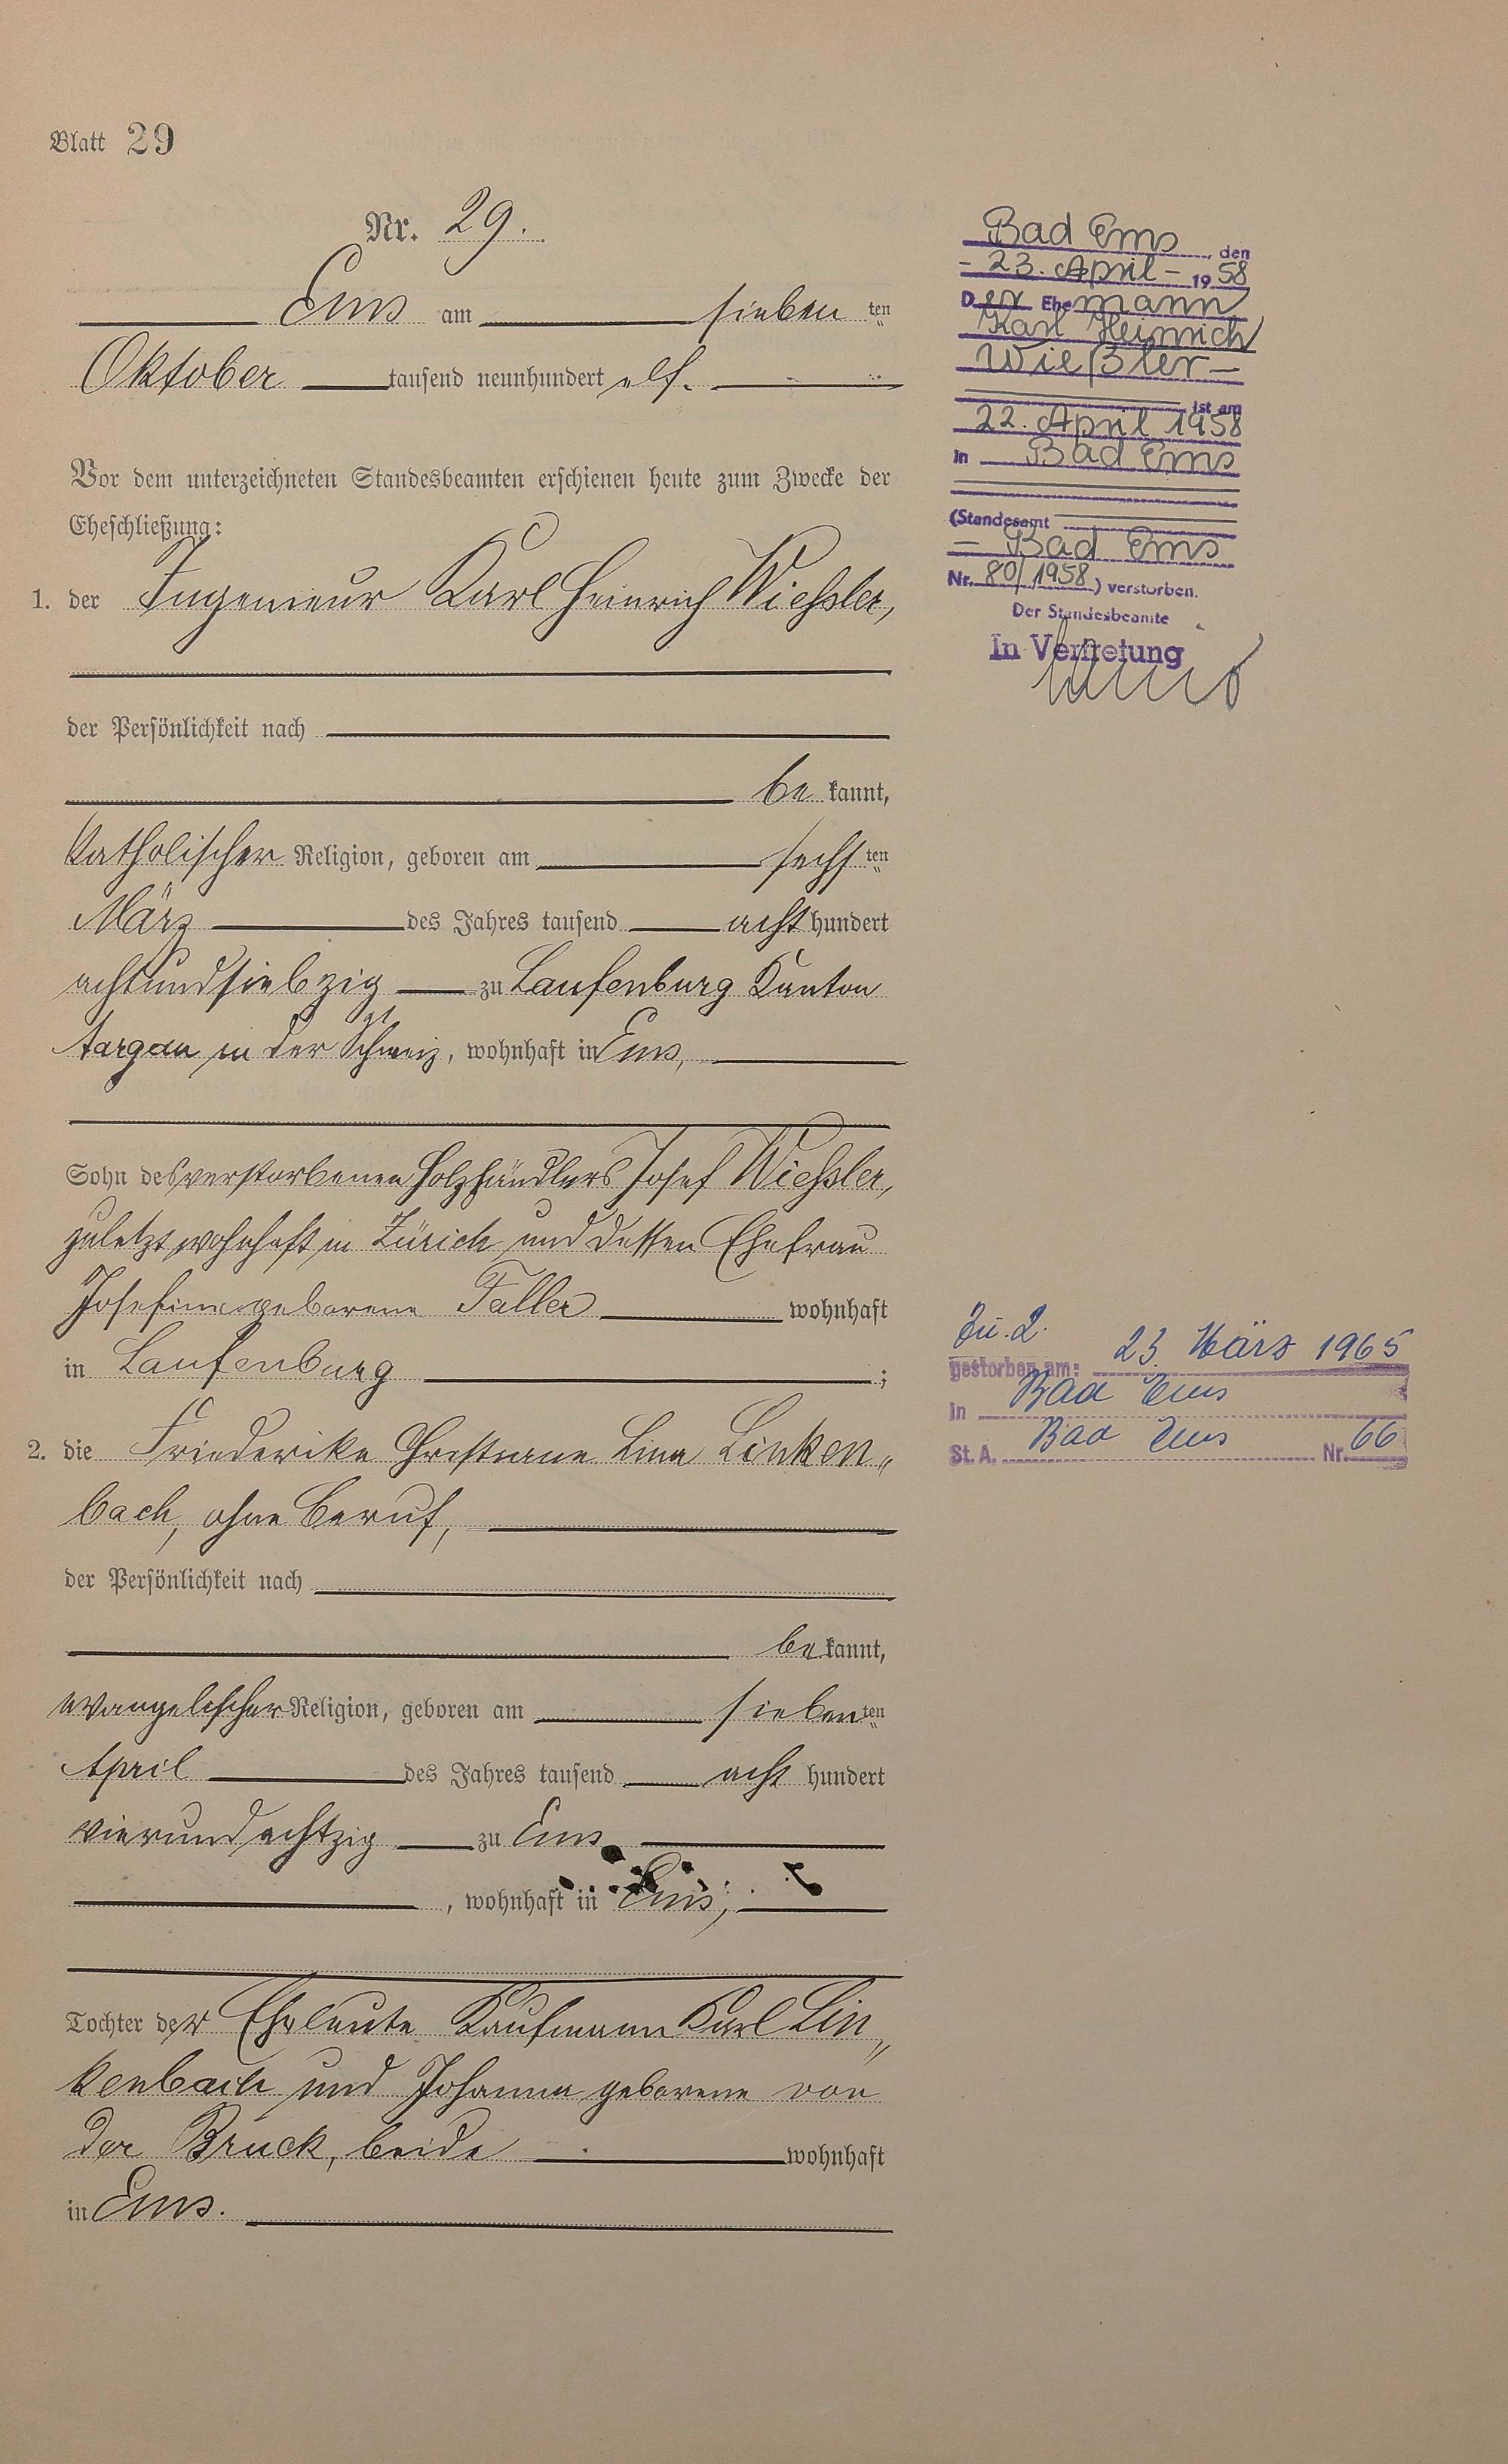 Blatt 29
Nr. 29.
Ems am siebenten
Oktober tausend neunhundert elf.
Vor dem unterzeichneten Standesbeamten erschienen heute zum Zwecke der
Eheschließung:
1. der Ingenieur Karl Heinrich Wießler,
der Persönlichkeit nach
bekannt,
katholischer Religion, geboren am sechsten
März des Jahres tausend acht hundert
achtundsiebzig zu Laufenburg Kanton
Aargau in der Schweiz, wohnhaft in Ems,
Sohn des verstorbenen Holzhändlers Josef Wießler,
zuletzt wohnhaft in Zürich und dessen Ehefrau
Josefine geborene Faller wohnhaft
in Laufenburg ;
2. die Friederike Christiane Lina Linken„
bach, ohne Beruf,
der Persönlichkeit nach
bekannt,
evangelischer Religion, geboren am siebenten
April des Jahres tausend acht hundert
vierundachtzig zu Ems
, wohnhaft in Ems,
Tochter der Eheleute Kaufmann Karl Lin„
kenbach und Johanna geborene von
der Bruck, beide wohnhaft
in Ems.
Bad Ems, den
- 23. April - 1958
Der Ehemann
Karl Heinrich
Wießler -
ist am
22. April 1958
in Bad Ems
(Standesamt
- Bad Ems
Nr. 80/1958) verstorben.
Der Standesbeamte
In Vertretung
Zu. 2.
gestorben am: 23. März 1965
in Bad Ems
St. A. Bad Ems Nr. 66